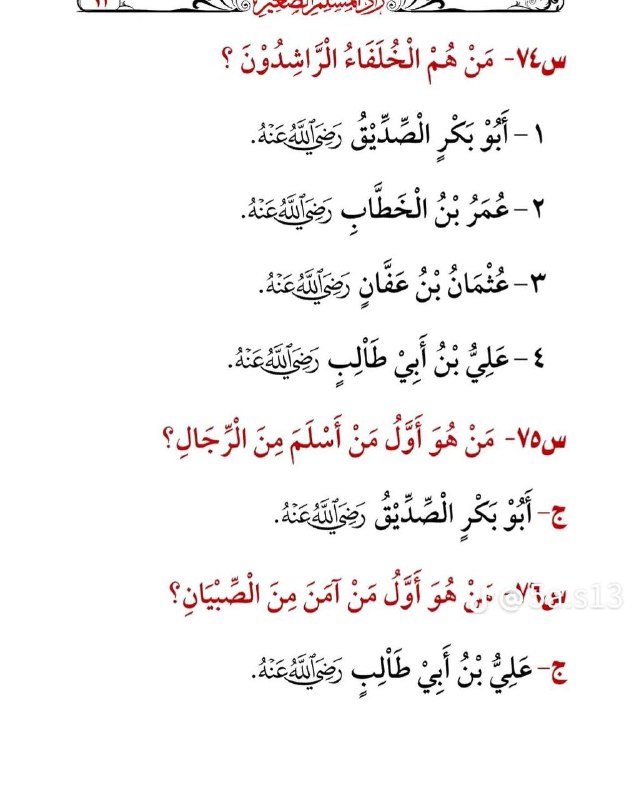 زاد المسلم الصغير
س٧٤- مَنْ هُمْ الْخُلَفَاءُ الْرَّاشِدُوْنَ ؟
١ – أَبُوْ بَكْرٍ الْصِّدِّيْقُ رَضِيَ اللَّهُ عَنْهُ.
٢ – عُمَرُ بْنُ الْخَطَّابِ رَضِيَ اللَّهُ عَنْهُ.
٣ – عُثْمَانُ بْنُ عَفَّانٍ رَضِيَ اللَّهُ عَنْهُ.
٤ – عَلِيُّ بْنُ أَبِيْ طَالِبٍ رَضِيَ اللَّهُ عَنْهُ.
س٧٥- مَنْ هُوَ أَوَّلُ مَنْ أَسْلَمَ مِنَ الْرِّجَالِ؟
ج– أَبُوْ بَكْرٍ الْصِّدِّيْقُ رَضِيَ اللَّهُ عَنْهُ.
س٧٦- مَنْ هُوَ أَوَّلُ مَنْ آمَنَ مِنَ الْصِّبْيَانِ؟
ج– عَلِيُّ بْنُ أَبِيْ طَالِبٍ رَضِيَ اللَّهُ عَنْهُ.